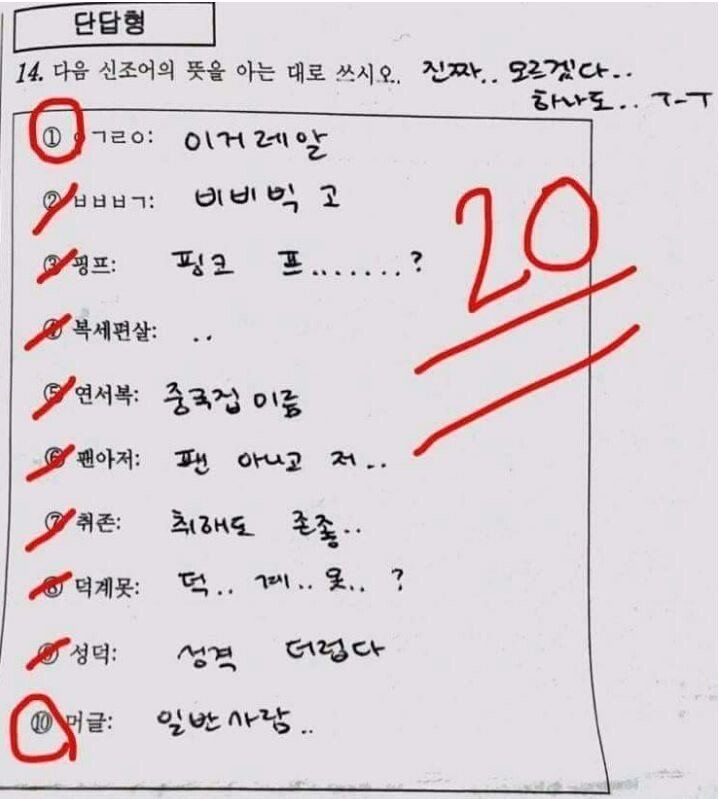 단답형
14. 다음 신조어의 뜻을 아는 대로 쓰시오. 진짜.. 모르겠다..
하나도.. ㅜ-ㅜ
① ㅇㄱㄹㅇ: 이거레알
② ㅂㅂㅂㄱ: 비비빅 고
③ 핑프: 핑크 프.......?
④ 복세편살: ..
⑤ 연서복: 중국집 이름
⑥ 팬아저: 팬 아니고 저..
⑦ 취존: 취해도 존좋..
⑧ 덕계못: 덕.. 계.. 못.. ?
⑨ 성덕: 성격 더럽다
⑩ 머글: 일반사람..
20